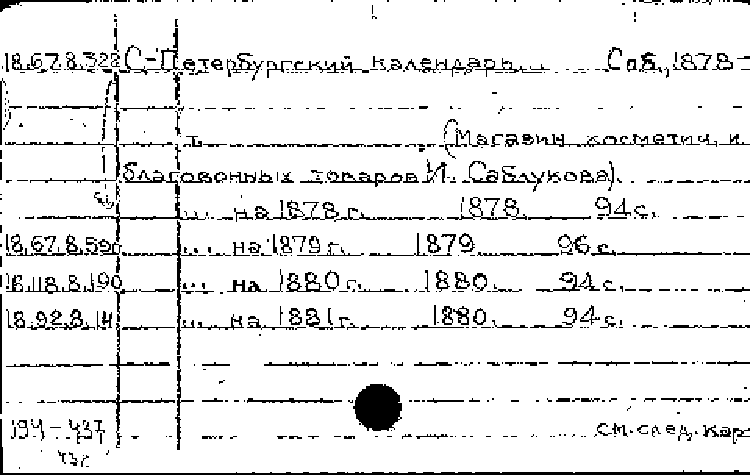 18.67.8.328 С-Петербургский календарь... Спб., 1878-
т. (Магазин косметич. и
благовонных товаров И. Саблукова).
... на 1878 г. 1878. 94 с.
18.67.8.590 ... на 1879 г. 1879 96 с.
18.118.8.190 ... на 1880 г. 1880. 94 с.
18.92.8.14 ... на 1881 г. 1880. 94 с.
194-437 см. след. карт